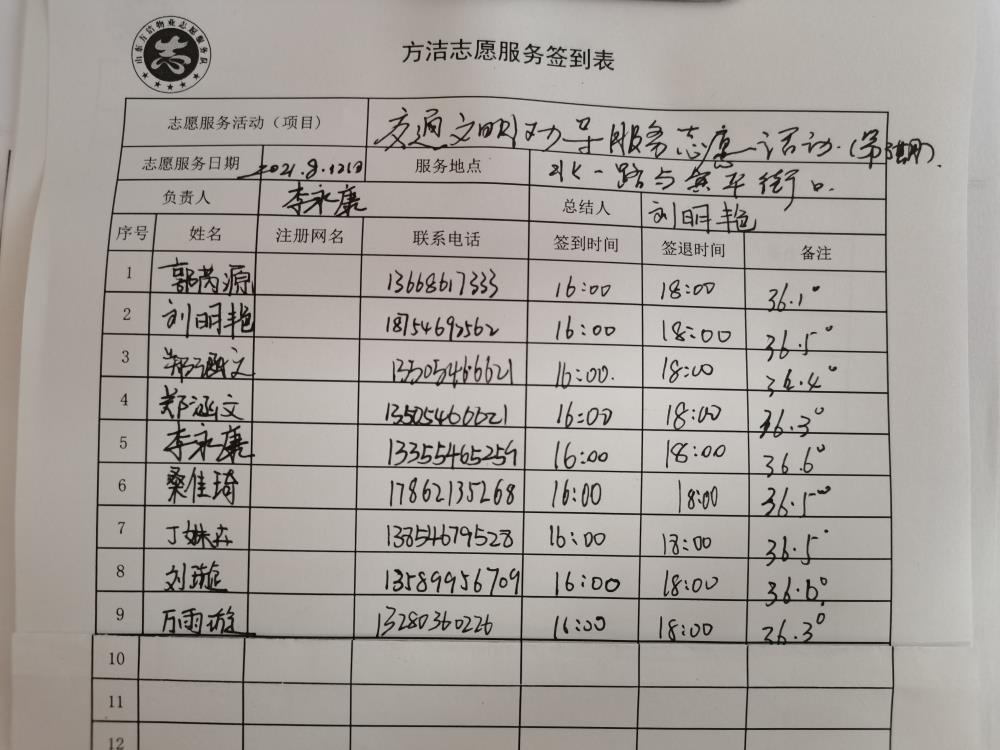 山东方洁物业志愿服务队
志
方洁志愿服务签到表
志愿服务活动（项目） 交通文明劝导服务志愿活动.(第 期).
志愿服务日期 2021.8.12日 服务地点 一路与 街口.
负责人 李永康 总结人 刘明艳
序号 姓名 注册网名 联系电话 签到时间 签退时间 备注
1 郭芮源 13668617333 16:00 18:00 36.1°
2 刘明艳 18754692562 16:00 18:00 36.5°
3 郑涵文 13505466621 16:00. 18:00 36.4°
4 郑涵文 13505466621 16:00 18:00 36.3°
5 李永康 13355465259 16:00 18:00 36.6°
6 桑佳琦 17862135268 16:00 18:00 36.5°
7 丁姝卉 13854679528 16:00 18:00 36.5°
8 刘璇 13589956709 16:00 18:00 36.6°
9 万雨璇 13280360226 16:00 18:00 36.3°
10
11
12